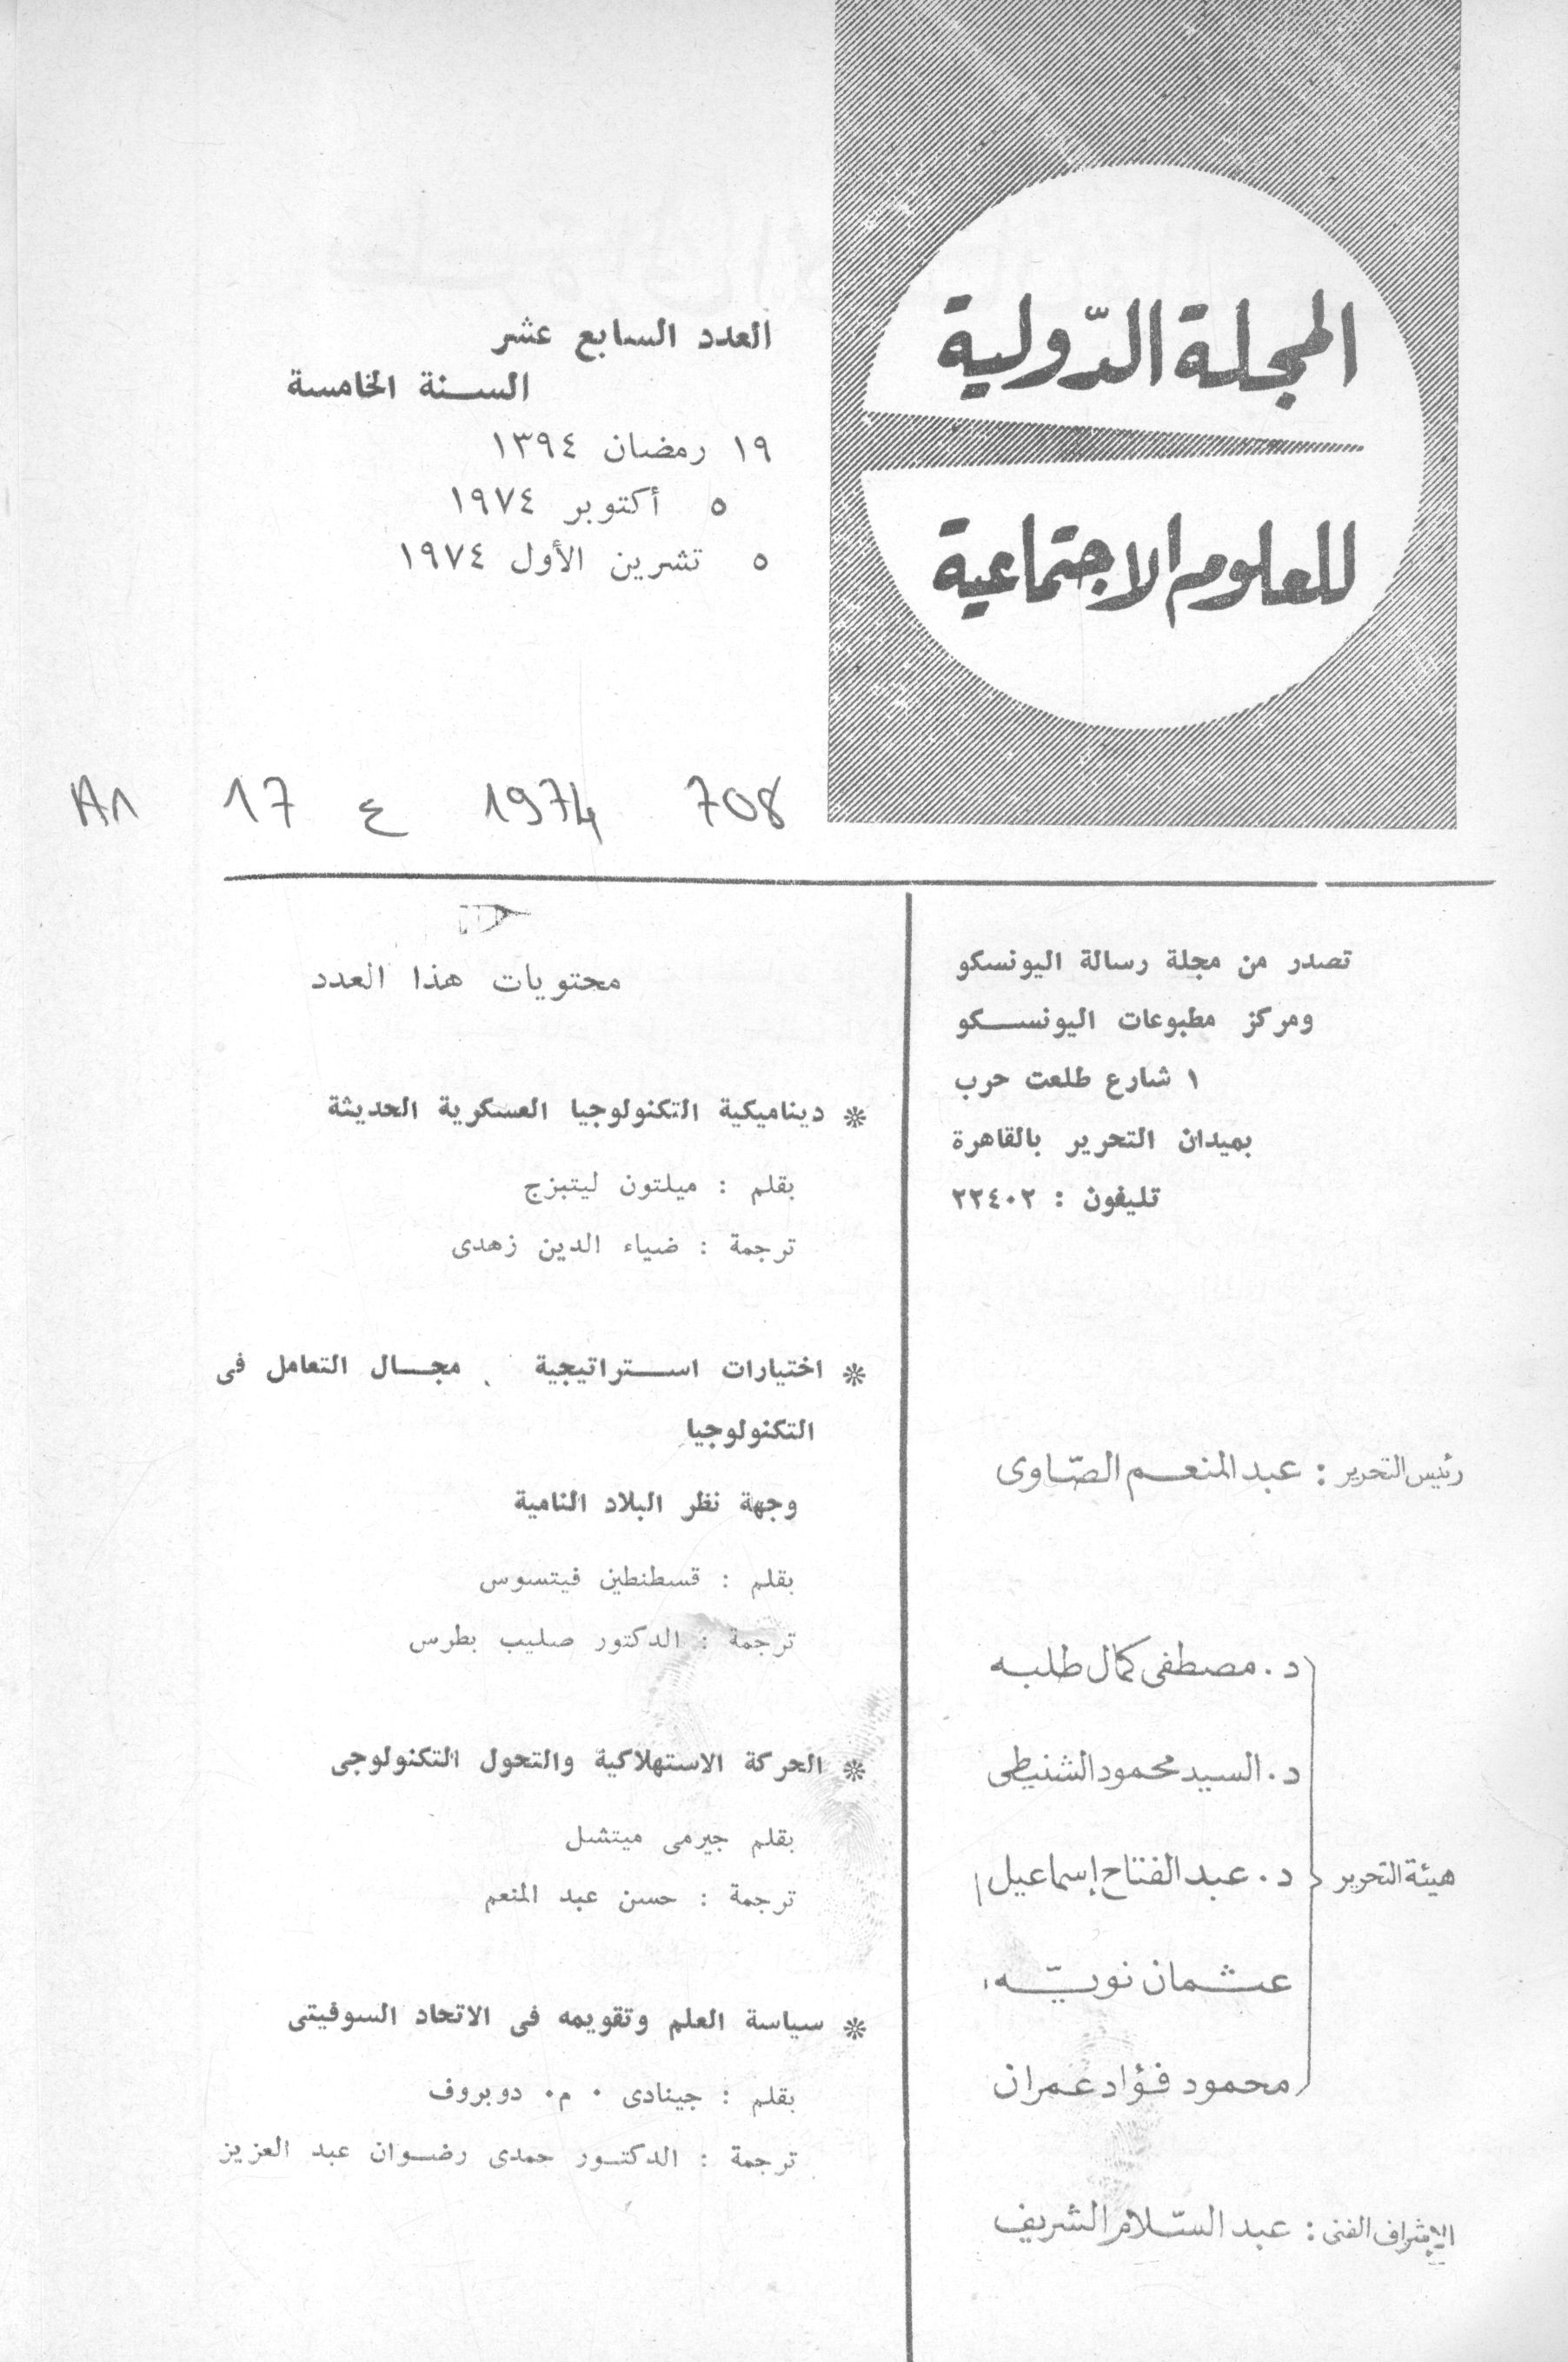 المجلة الدّولية
للعلوم الاجتماعية
العدد السابع عشر
السنة الخامسة
١٩ رمضان ١٣٩٤
٥ أكتوبر ١٩٧٤
٥ تشرين الأول ١٩٧٤
708 1974 ع 17
تصدر من مجلة رسالة اليونسكو
ومركز مطبوعات اليونسكو
١ شارع طلعت حرب
بميدان التحرير بالقاهرة
تليفون : ٢٢٤٠٢
رئيس التحرير : عبد المنعم الصّاوى
هيئة التحرير
د. مصطفى كمال طلبه
د. السيد محمود الشنيطى
د. عبد الفتاح إسماعيل
عثمان نويّه
محمود فؤاد عمران
الإشراف الفنى : عبد السّلام الشريف
محتويات هذا العدد
❊ ديناميكية التكنولوجيا العسكرية الحديثة
بقلم : ميلتون ليتبزج
ترجمة : ضياء الدين زهدى
❊ اختيارات استراتيجية . مجال التعامل فى
التكنولوجيا
وجهة نظر البلاد النامية
بقلم : قسطنطين فيتسوس
ترجمة : الدكتور صليب بطرس
❊ الحركة الاستهلاكية والتحول التكنولوجى
بقلم جيرمى ميتشل
ترجمة : حسن عبد المنعم
❊ سياسة العلم وتقويمه فى الاتحاد السوفيتى
بقلم : جينادى ٠ م٠ دوبروف
ترجمة : الدكتور حمدى رضوان عبد العزيز